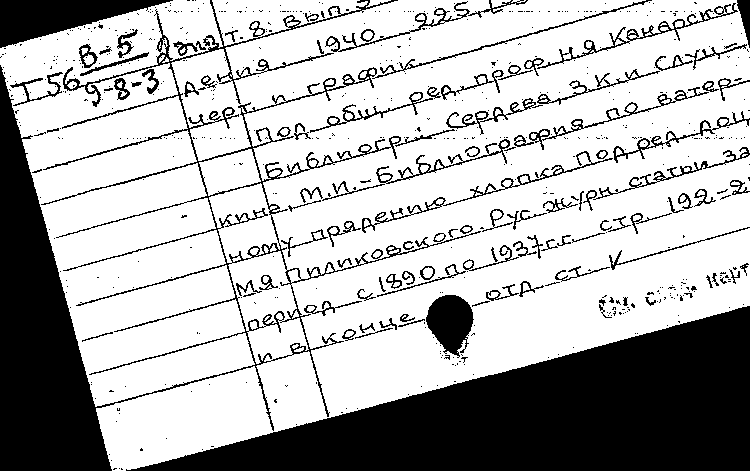 т. 8. Вып.
В-5
I 56 9-8-3 2 экз
дения. 1940. 225,
черт. и график.
Под общ. ред. проф. Н.Я Канарского
Библиогр.: Сердева, З.К. и Слуц-
кина, М.И. - Библиография по ватер-
ному прядению хлопка Под ред. доц
М.Я. Пиликовского. Рус. журн. статьи за
период с 1890 по 1937 г.г. стр. 192-2
и в конце отд ст. V
См. след. карт